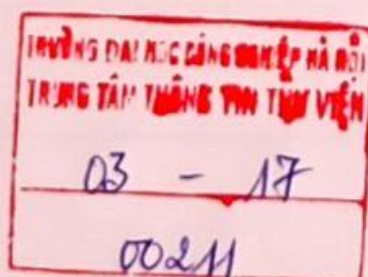 TRƯỜNG ĐẠI HỌC CÔNG NGHIỆP HÀ NỘI
TRUNG TÂM THÔNG TIN THƯ VIỆN
03 - 17
00211